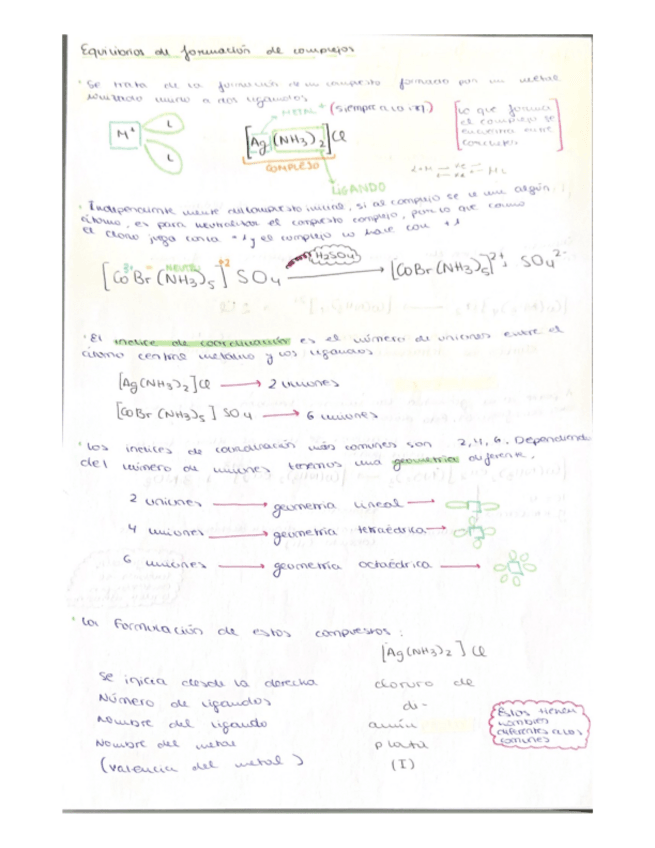 Equilibrios de formación de complejos
· Se trata de la formación de un compuesto formado por un metal
unido a dos ligandos
METAL + (siempre a la izq)
M+
L
L
[Ag(NH3)2]Cl
COMPLEJO
LIGANDO
lo que forma
el complejo se
encuentra entre
corchetes
· Independientemente del compuesto inicial, si al complejo se le une algún
átomo, es para neutralizar el compuesto complejo, por lo que como
el cloro juega con -1 y el complejo lo hace con +1
3+ - NEUTRO +2
[CoBr(NH3)5] SO4
H2SO4
[CoBr(NH3)5]2+, SO42-
· El indice de coordinación es el número de uniones entre el
átomo central metálico y los ligandos
[Ag(NH3)2]Cl → 2 uniones
[CoBr(NH3)5] SO4 → 6 uniones
· Los indices de coordinación más comunes son 2, 4, 6. Dependiendo
del número de uniones tenemos una geometría diferente.
2 uniones → geometría lineal →
4 uniones → geometría tetraédrica →
6 uniones → geometría octaédrica →
· La formulación de estos compuestos:
[Ag(NH3)2]Cl
Se inicia desde la derecha cloruro de
Número de ligandos di-
Nombre del ligando amín
Nombre del metal plata
(valencia del metal) (I)
Estos tienen
nombres
diferentes a los
comunes